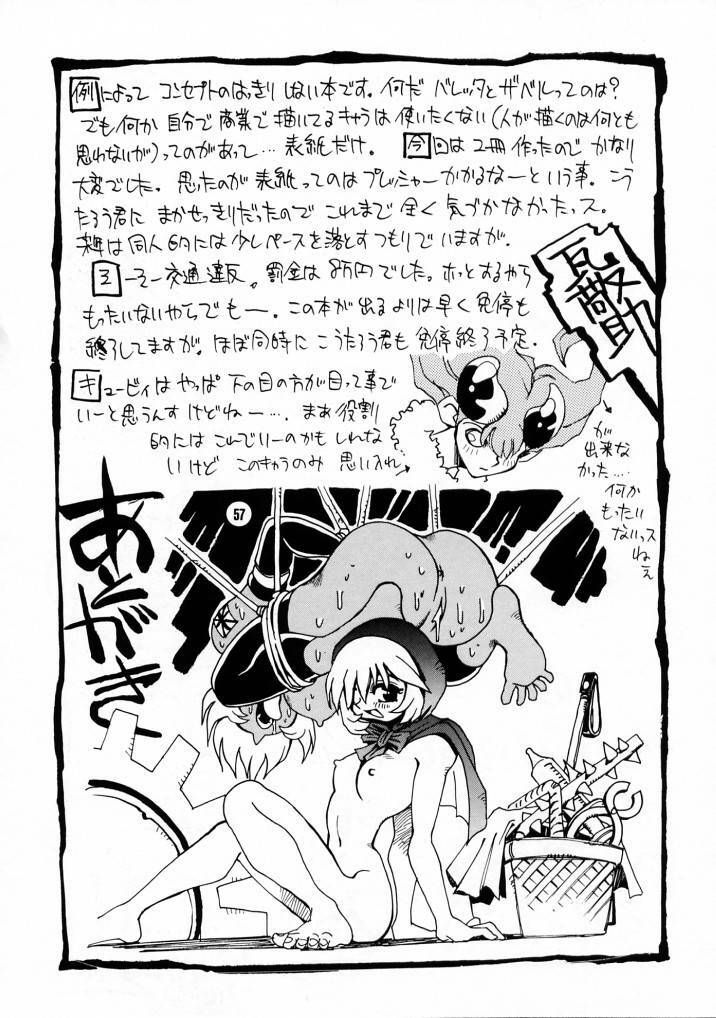 例によって コンセプトのはっきり しない本です。何だ バレッタとザベルってのは?
でも何か 自分で 商業で 描いてるキャラは 使いたくない(人が描くのは何とも
思わないが)ってのがあって…表紙だけ。 今回は 2冊 作ったので かなり
大変でした。思ったのが 表紙ってのは プレッシャーかかるなーという事。こう
たろう君に まかせっきりだったので これまで 全く 気づかなかったっス。
来年は同人的には少しペースを落とすつもりでいますが。
そーそー交通違反。罰金は8万円でした。ホッとするやら
もったいないやらでもー。この本が出るよりは早く免停も
終了してますが。ほぼ同時に こうたろう君も 免停終了予定.
キュービィはやっぱ 下の目の方が目って事で
いーと思うんすけどねー…. まあ役割
的にはこれでいーのかもしれな
いけど このキャラのみ 思い入れ
が
出来な
かった….
何か
もったい
ないっス
ねぇ
あとがき
57